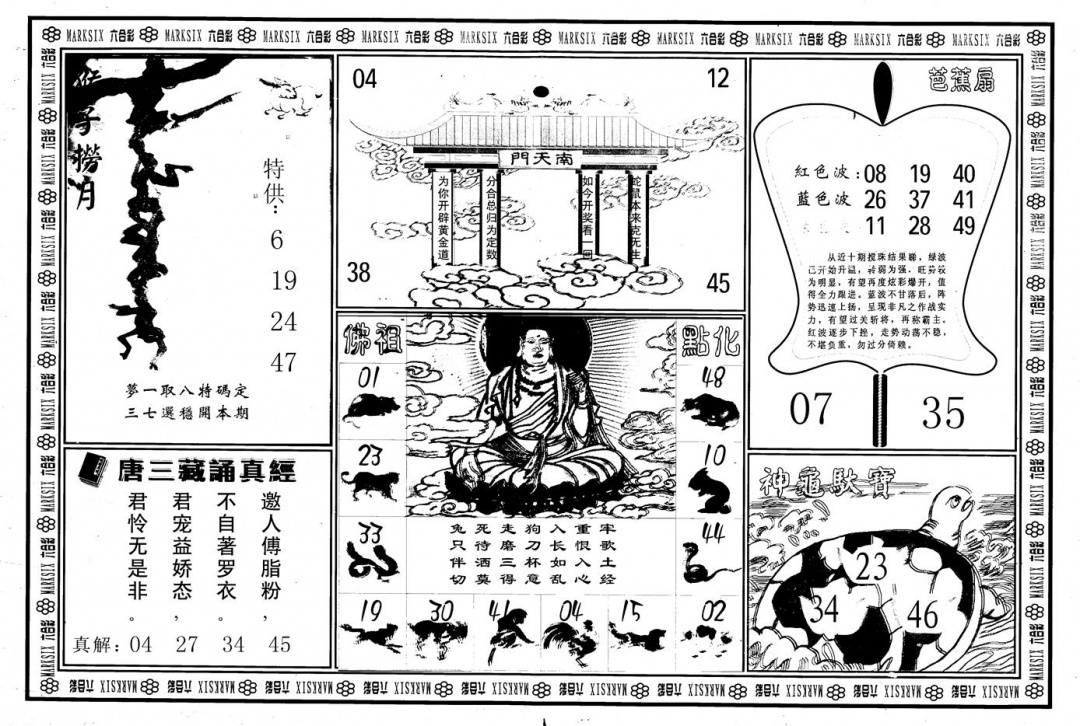 MARKSIX 六合彩 MARKSIX 六合彩 MARKSIX 六合彩 MARKSIX 六合彩 MARKSIX 六合彩 MARKSIX 六合彩 MARKSIX 六合彩 MARKSIX 六合彩 MARKSIX 六合彩 MARKSIX 六合彩
猴子撈月
特供：
6
19
24
47
夢一取八特碼定
三七選穩開本期
04
12
南天門
为你开辟黄金道
分合总归为定数
如今开奖看一回
蛇鼠本来克无生
38
45
芭蕉扇
紅色波：08 19 40
藍色波 26 37 41
11 28 49
从近十期搅珠结果睇，绿波
已开始升温，转弱为强，旺势较
为明显，有望再度炫彩爆开，值
得全力跟进。蓝波不甘落后，阵
势迅速上扬，呈现非凡之作战实
力，有望过关斩将，再称霸主。
红波逐步下挫，走势动荡不稳，
不堪负重，勿过分倚赖。
07
35
佛祖
點化
01
48
23
10
33
44
兔死走狗入重牢
只待磨刀长恨歌
伴洒三杯如入土
切莫得意乱心经
19 30 41 04 15 02
唐三藏誦真經
邀人傅脂粉，
不自著罗衣。
君宠益娇态，
君怜无是非。
真解：04 27 34 45
神龜馱寶
23
34
46